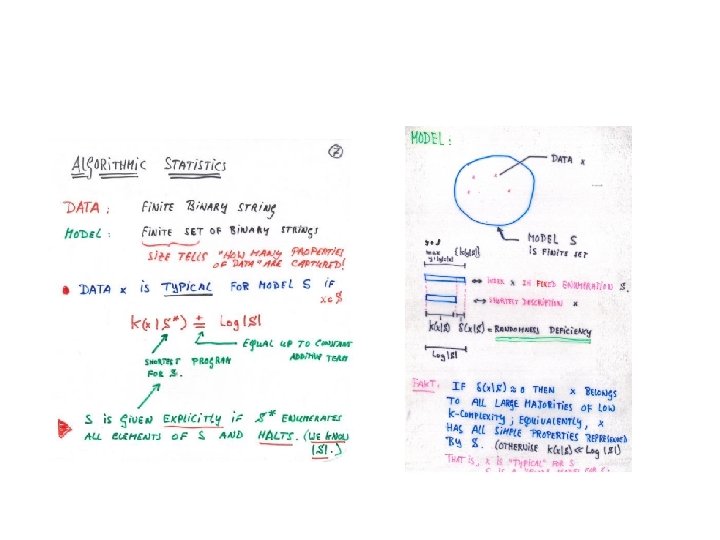 ⑦
ALGORITHMIC STATISTICS
DATA: FINITE BINARY STRING
MODEL: FINITE SET OF BINARY STRINGS
SIZE TELLS "HOW MANY PROPERTIES
OF DATA" ARE CAPTURED!
• DATA x IS TYPICAL FOR MODEL S IF
x∈S
K(x|S*) ±= Log |S|
EQUAL UP TO CONSTANT
ADDITIVE TERM
SHORTEST PROGRAM
FOR S.
S IS GIVEN EXPLICITLY IF S* ENUMERATES
ALL ELEMENTS OF S AND HALTS. (WE KNOW
|S|.)
MODEL:
DATA x
MODEL S
IS FINITE SET
max
INDEX x IN FIXED ENUMERATION S.
SHORTEST DESCRIPTION x
K(x|S) δ(x|S) = RANDOMNESS DEFICIENCY
Log |S|
FACT. IF δ(x|S) ≈ 0 THEN x BELONGS
TO ALL LARGE MAJORITIES OF LOW
K-COMPLEXITY; EQUIVALENTLY, x
HAS ALL SIMPLE PROPERTIES REPRESENTED
BY S. (OTHERWISE K(x|S) ≪ Log |S|)
THAT IS, x IS "TYPICAL" FOR S